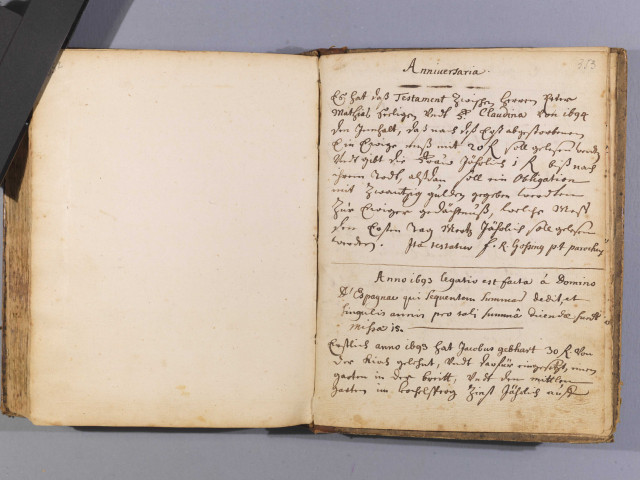 Anniversaria.
353
Es hat daß Testament Zwischen Herren Peter
Mathias Heiligen Undt Claudina Von 1694
den Innhalt, daß nach deß Erst abgestorbenen
Ein Ewige meß mit 20 R soll gelesen werden
Undt gibt die Frau Jährlich 1 R biß nach
ihrem Todt, alßdan soll ein Obligation
mit Zwantzig gulden gegeben werden
Zur Ewiger gedächtnuß, welche Mess
den Ersten tag Mertz Jährlich soll gelesen
werden. Ita testatur f. R. pt parochus
Anno 1693 legatio est facta á Domino
D'Espagnac qui sequentem summam dedit, et
singulis annis pro tali summa dicendae sunt
missae is.
Erstlich anno 1693 hat Jacobus gebhart 30 R Von
der Kirch gelehnt, Undt darfür eingesetzt, einen
garten in der breitt, Undt den mittlen
garten im Zinst Jährlich auff